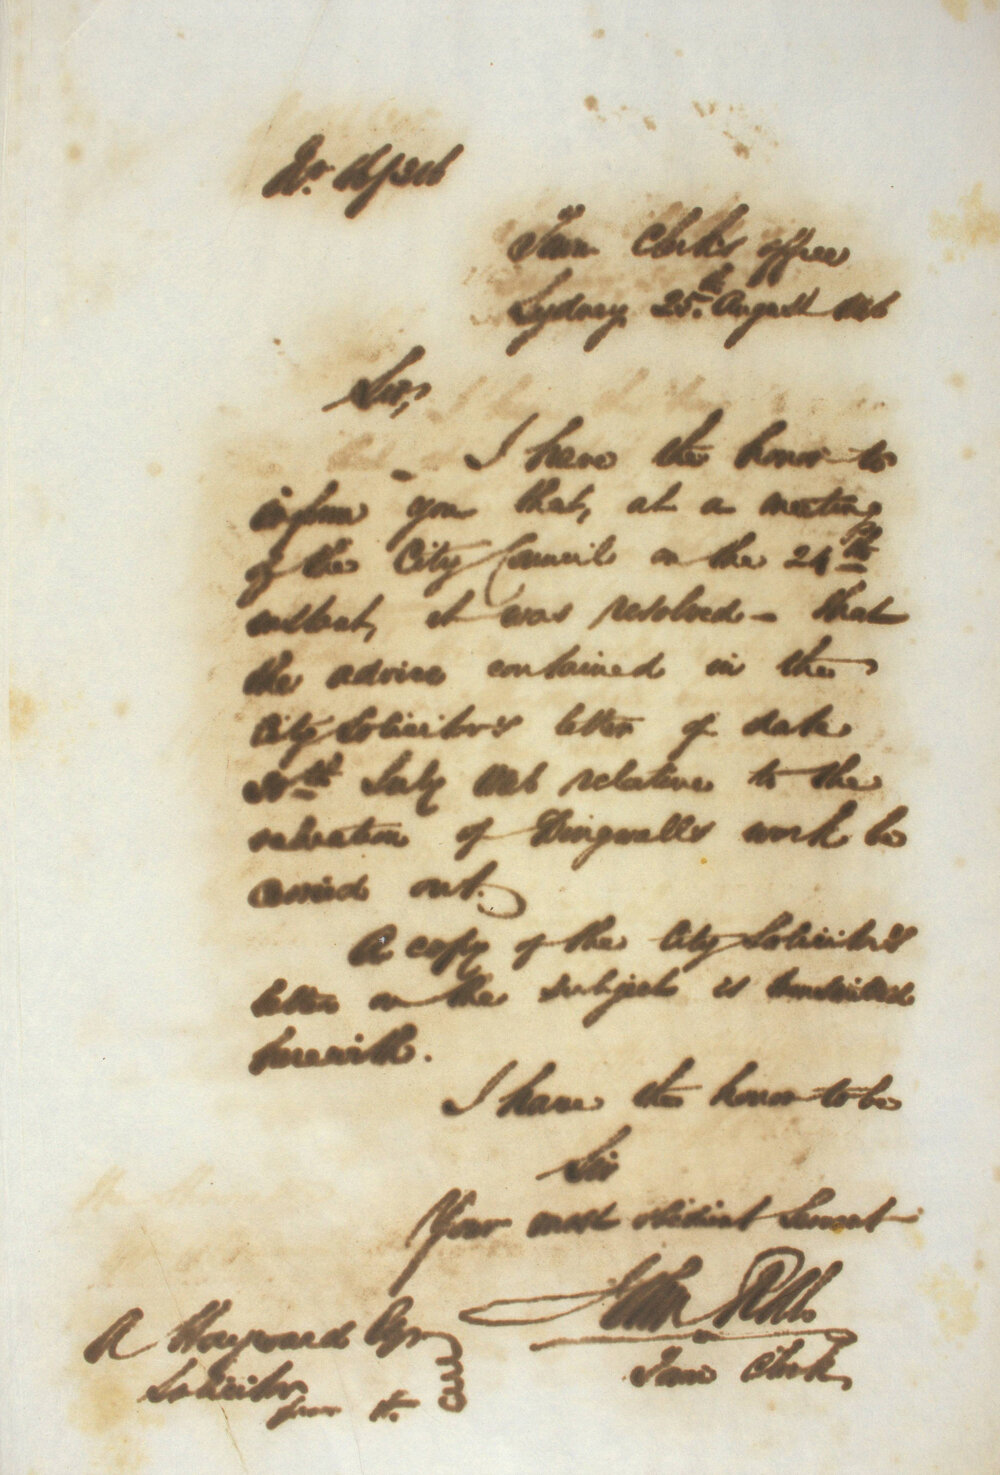 Town Clerk's Office
Sydney 25th August
Sir,
I have the honor to
inform you that, at a meeting
of the City Council on the 24th
instant, it was resolved - that
the advice contained in the
City Solicitor's letter of date
July relative to the
valuation of Dingwall's work be
carried out.
A copy of the City Solicitor's
letter on the subject is transmitted
herewith.
I have the honor to be
Sir
Your most obedient Servant
Town Clerk
Hayward Esqr
Solicitor